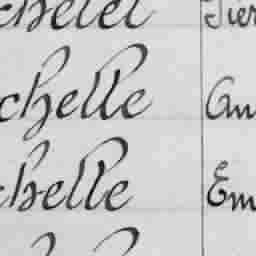 chelet Tier
chelle An
chelle Em